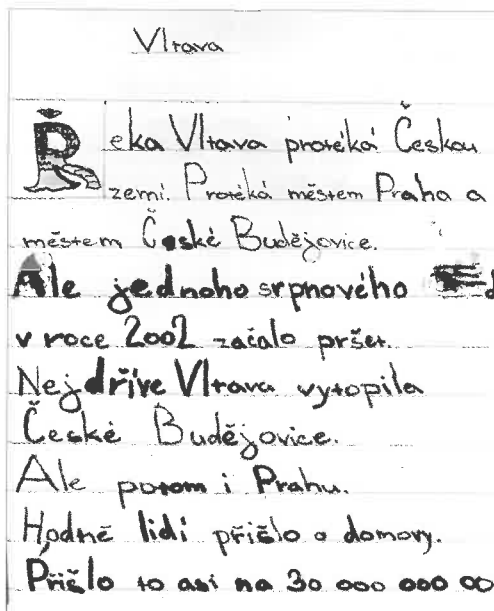 Vltava
Řeka Vltava protéká Českou
zemí. Protéká městem Praha a
městem České Budějovice.
Ale jednoho srpnového
v roce 2002 začalo pršet.
Nejdříve Vltava vytopila
České Budějovice.
Ale potom i Prahu.
Hodně lidí přišlo o domovy.
Přišlo to asi na 30 000 000 00